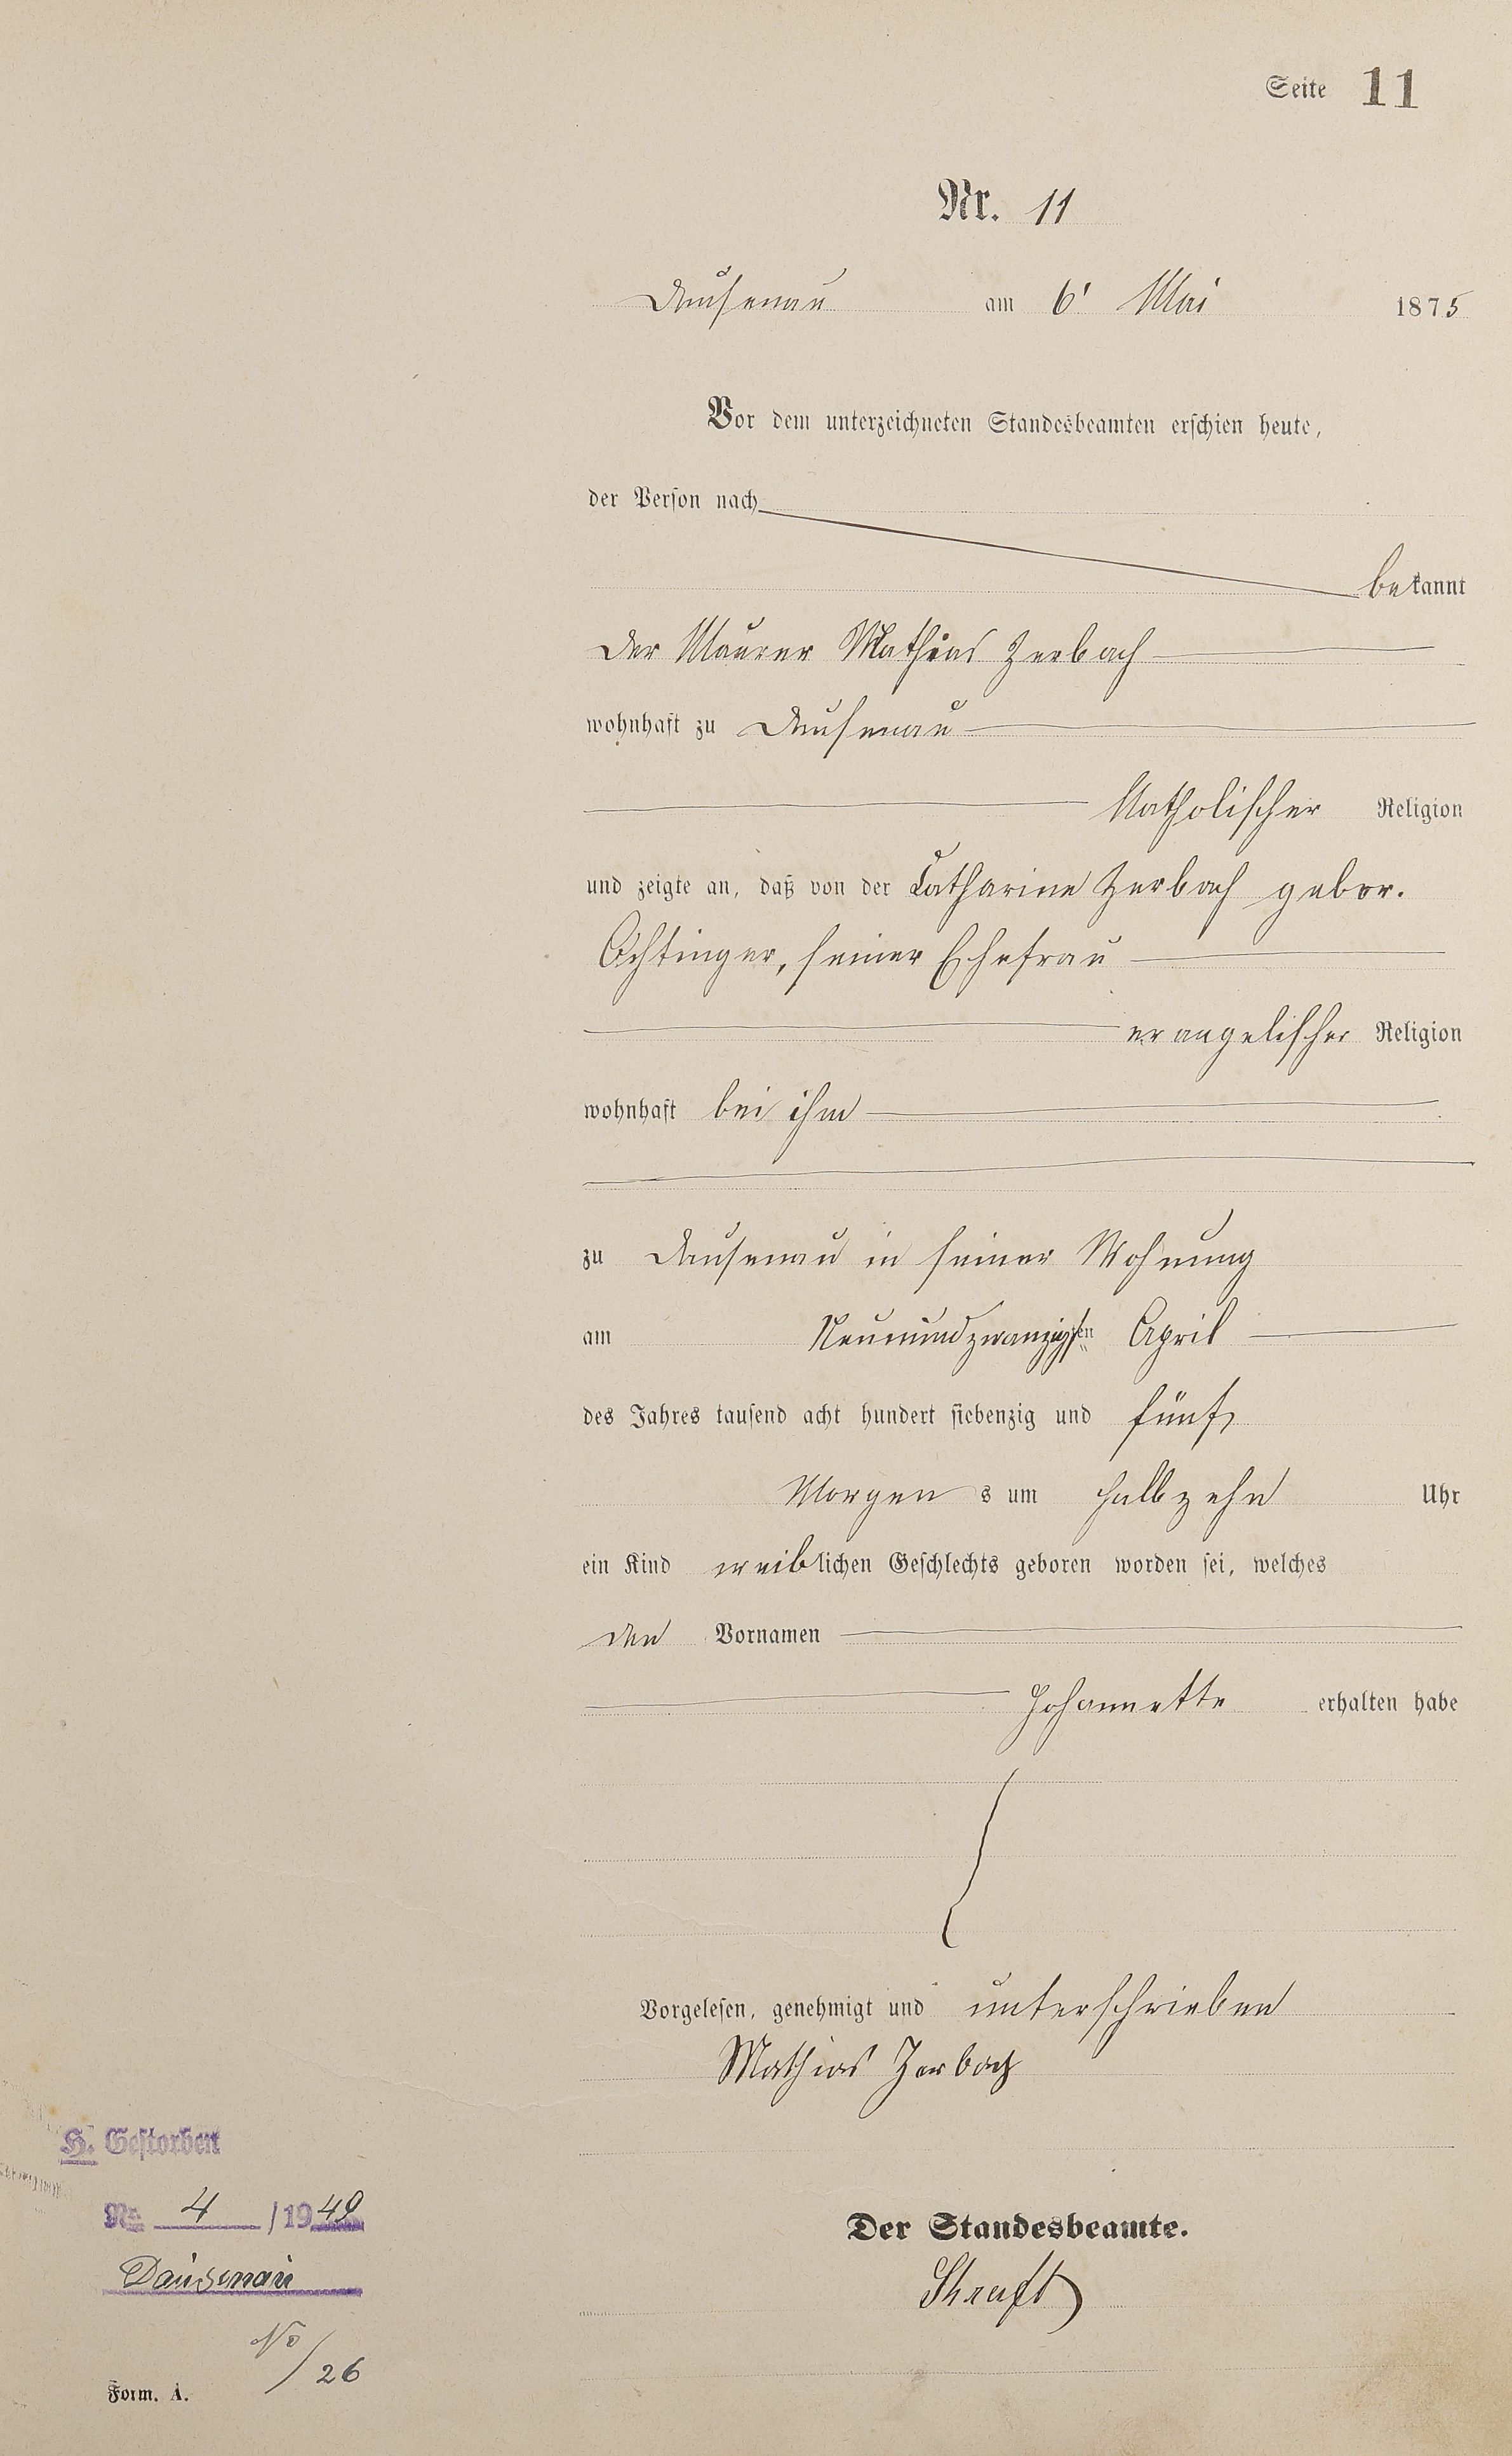 Seite 11
Nr. 11
Dausenau am 6' Mai 1875
Vor dem unterzeichneten Standesbeamten erschien heute,
der Person nach
bekannt
der Maurer Mathias Zerbach
wohnhaft zu Dausenau
Katholischer Religion
und zeigte an, daß von der Catharine Zerbach gebor.
Achtinger, seiner Ehefrau
evangelischer Religion
wohnhaft bei ihm
zu Dausenau in seiner Wohnung
am Neunundzwanzigsten April
des Jahres tausend acht hundert siebenzig und fünf,
Morgens um halbzehn Uhr
ein Kind weiblichen Geschlechts geboren worden sei, welches
den Vornamen
Johannette erhalten habe
Vorgelesen, genehmigt und unterschrieben
Mathias Zerbach
H. Gestorben
Nr. 4 /1949
Der Standesbeamte.
Dausenau
No/26
Form. A.